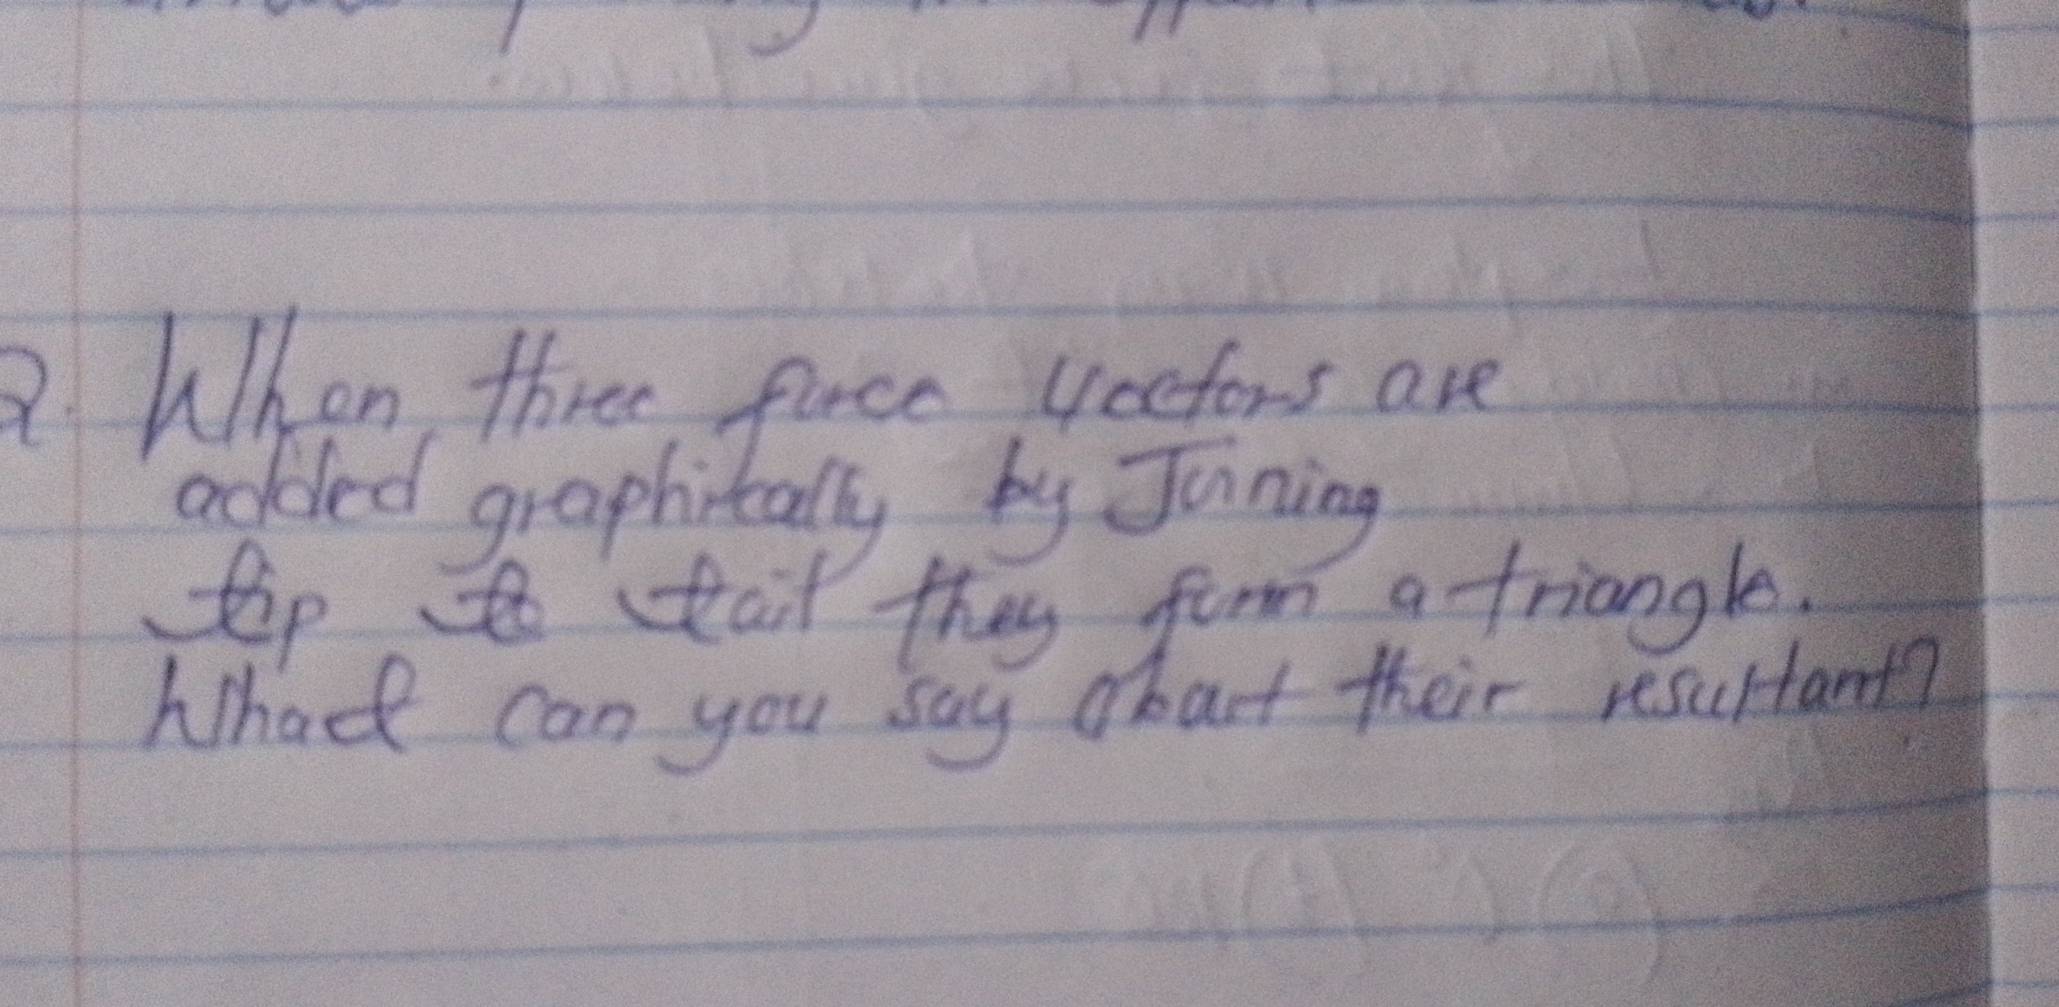 2. When three force vectors are
added graphically by Joining
tip to tail they form a triangle.
What can you say about their resultant?